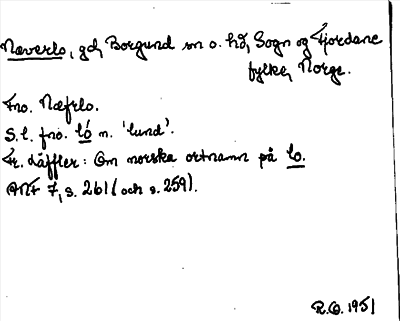 Naverlo, gd, Borgund sn o. hd, Sogn og Fjordane
fylke, Norge.
Fno. Næfrlo.
S. l. fno. ló n. 'lund'.
Fr. Läffler: Om norska ortnamn på lo.
ANF 7, s. 261 (och s. 259).
R.O. 1951